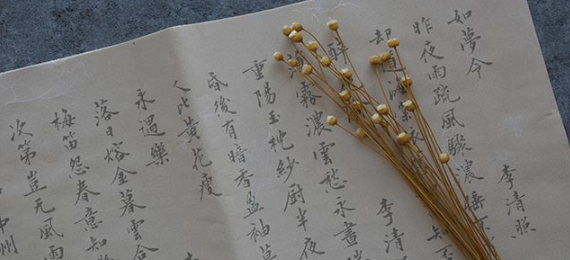 如夢令 李清照
昨夜雨疏風驟濃睡不
卻道海棠 知否
醉 李清
薄霧濃雲愁永晝瑞
重陽玉枕紗厨半夜
昏後有暗香盈袖莫
人比黃花瘦
永遇樂
落日熔金暮雲合
梅笛怨春意知
次第豈无風雨
中州